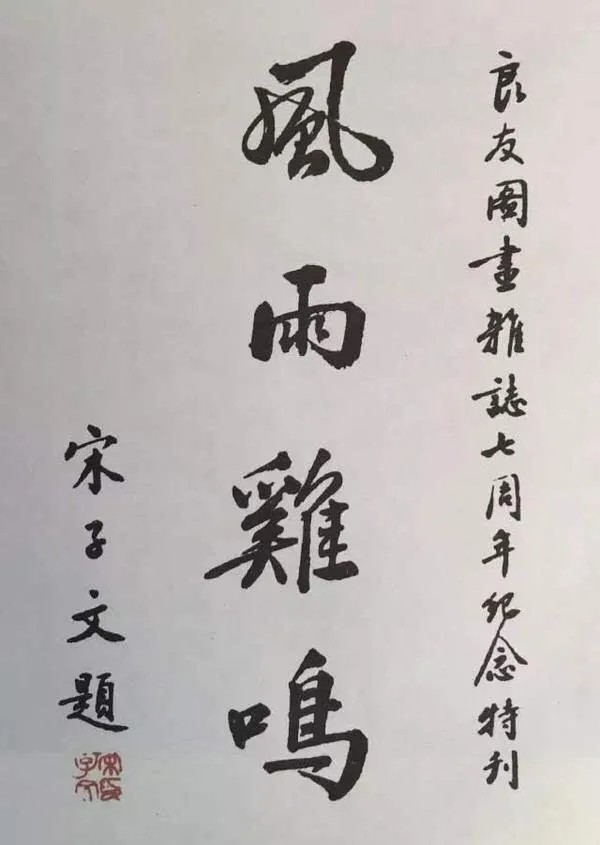 良友圖畫雜誌七周年紀念特刊
風雨雞鳴
宋子文題